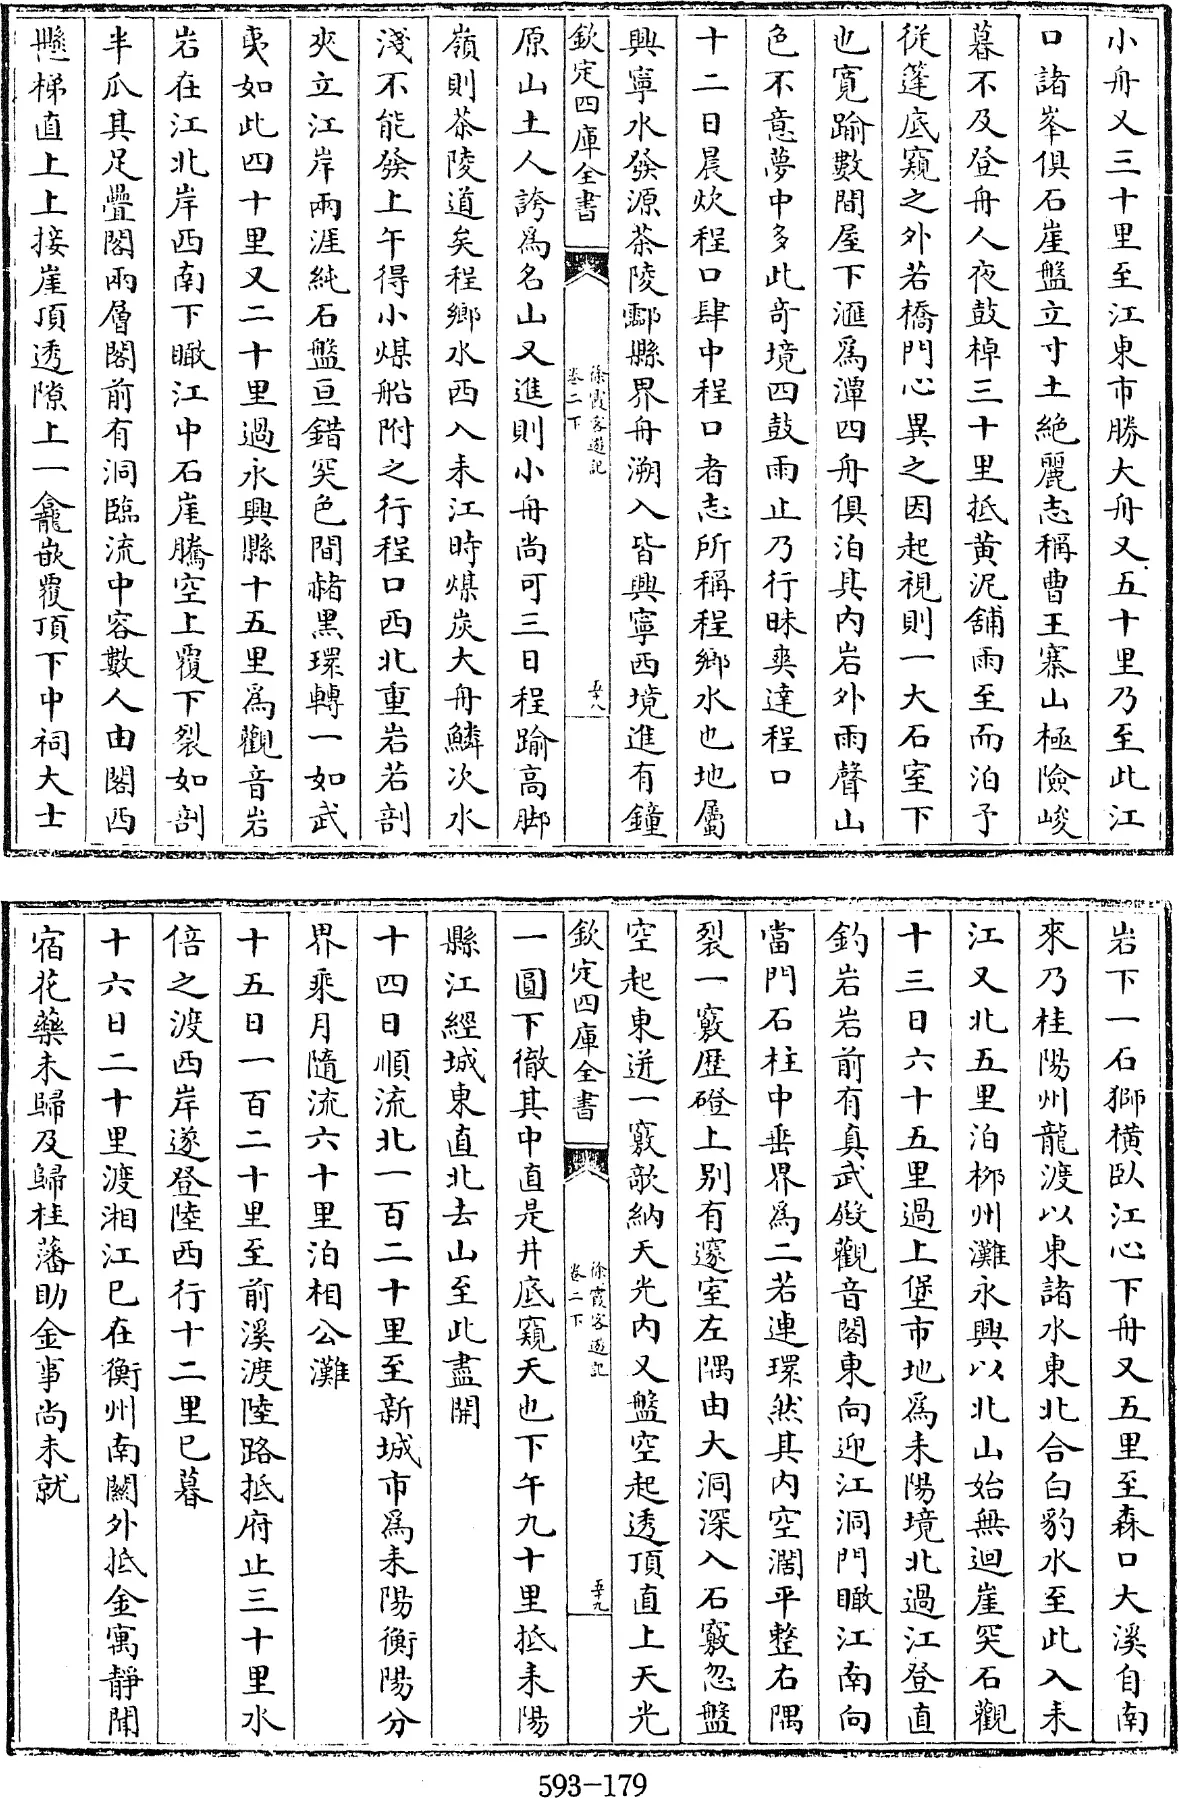 小舟又三十里至江東市勝大舟又五十里乃至此江
口諸峯俱石崖盤立寸土絶麗志稱曹王寨山極險峻
暮不及登舟人夜鼓棹三十里抵黄泥舖雨至而泊予
從篷底窺之外若橋門心異之因起視則一大石室下
也寛踰數間屋下滙爲潭四舟俱泊其内岩外雨聲山
色不意夢中多此竒境四鼓雨止乃行昧爽達程口
十二日晨炊程口肆中程口者志所稱程鄉水也地屬
興寧水發源茶陵酃縣界舟溯入皆興寧西境進有鐘
欽定四庫全書
徐霞客遊記
卷二下
五十八
原山土人誇爲名山又進則小舟尚可三日程踰高脚
嶺則茶陵道矣程鄉水西入耒江時煤炭大舟鱗次水
淺不能發上午得小煤船附之行程口西北重岩若剖
夾立江岸兩涯純石盤亘錯突色間赭黑環轉一如武
夷如此四十里又二十里過永興縣十五里爲觀音岩
岩在江北岸西南下瞰江中石崖騰空上覆下裂如剖
半瓜其足疊閣兩層閣前有洞臨流中容數人由閣西
懸梯直上上接崖頂透隙上一龕嵌覆頂下中祠大士
岩下一石獅橫臥江心下舟又五里至森口大溪自南
來乃桂陽州龍渡以東諸水東北合白豹水至此入耒
江又北五里泊柳州灘永興以北山始無迴崖突石觀
十三日六十五里過上堡市地爲耒陽境北過江登直
釣岩岩前有真武殿觀音閣東向迎江洞門瞰江南向
當門石柱中垂界爲二若連環然其内空濶平整右隅
裂一竅歷磴上别有邃室左隅由大洞深入石竅忽盤
空起東迸一竅歘納天光内又盤空起透頂直上天光
欽定四庫全書
徐霞客遊記
卷二下
五十九
一圓下徹其中直是井底窺天也下午九十里抵耒陽
縣江經城東直北去山至此盡開
十四日順流北一百二十里至新城市爲耒陽衡陽分
界乘月隨流六十里泊相公灘
十五日一百二十里至前溪渡陸路抵府止三十里水
倍之渡西岸遂登陸西行十二里已暮
十六日二十里渡湘江已在衡州南關外抵金寓靜聞
宿花藥未歸及歸桂藩助金事尚未就
593-179